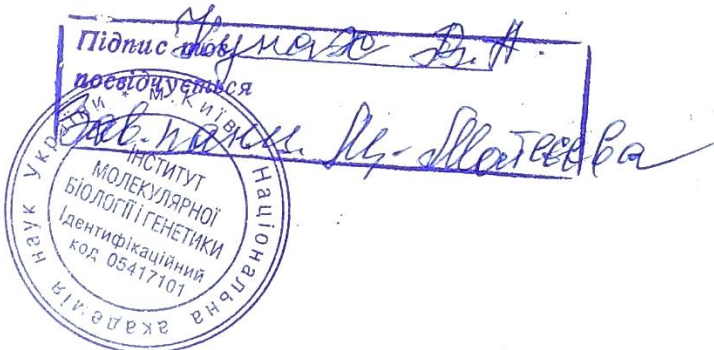 Підпис тов. Кунаха В.А.
посвідчується
Зав. канц. Матвеева
Національна академія наук України * м. Київ
ІНСТИТУТ
МОЛЕКУЛЯРНОЇ
БІОЛОГІЇ І ГЕНЕТИКИ
Ідентифікаційний
код 05417101